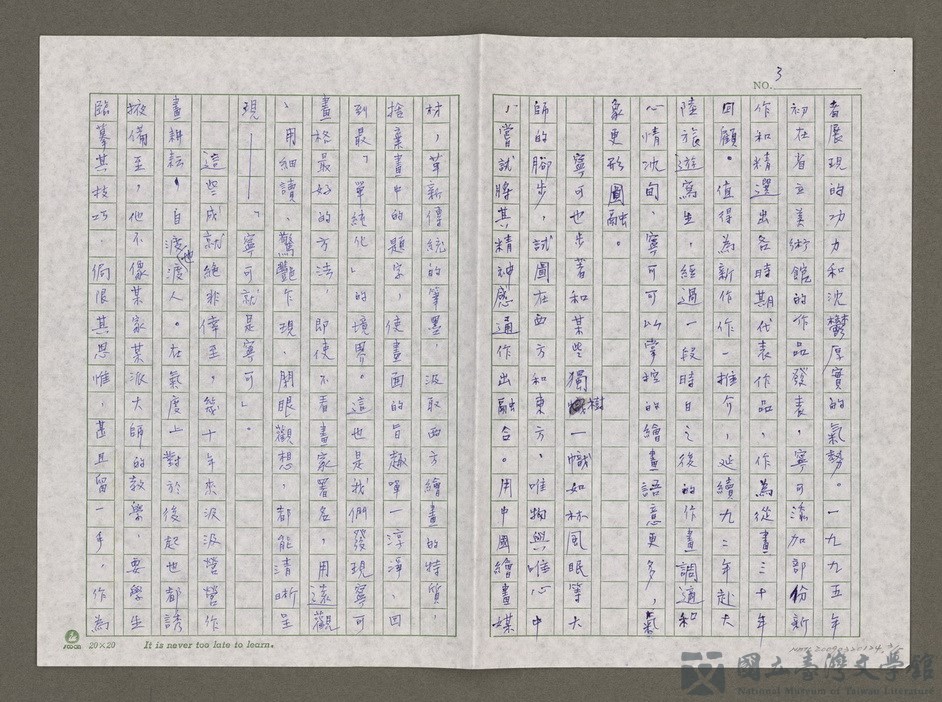 NO. 3
者展現的功力和沈鬱厚實的氣勢。一九九五年
初在省立美術館的作品發表，寧可添加部份新
作和精選出各時期代表作品，作為從畫三十年
回顧。值得為新作作一推介，延續九二年赴大
陸旅遊寫生，經過一段時日之後的作畫調適和
心情沈甸，寧可可以掌控的繪畫語意更多，氣
象更形圓融。
寧可也步著和某些獨樹一幟如林風眠等大
師的腳步，試圖在西方和東方，唯物與唯心中
，嘗試將其精神感通作出融合。用中國繪畫媒
材，革新傳統的筆墨，汲取西方繪畫的特質，
捨棄畫中的題字，使畫面的旨趣單一淳淨，回
到最「單純化」的境界。這也是我們發現寧可
畫格最好的方法，即使不看畫家署名，用遠觀
、用細讀、驚艷乍現、閉眼觀想，都能清晰呈
現——「寧可就是寧可」。
這些成就絕非倖至，幾十年來汲汲營營作
畫耕耘，自渡他渡人。在氣度上對於後起也都誘
掖備至，他不像某家某派大師的教學，要學生
臨摹其技巧，侷限其思惟，甚且留一手，作為
20×20 It is never too late to learn.
國立臺灣文學館
National Museum of Taiwan Literature